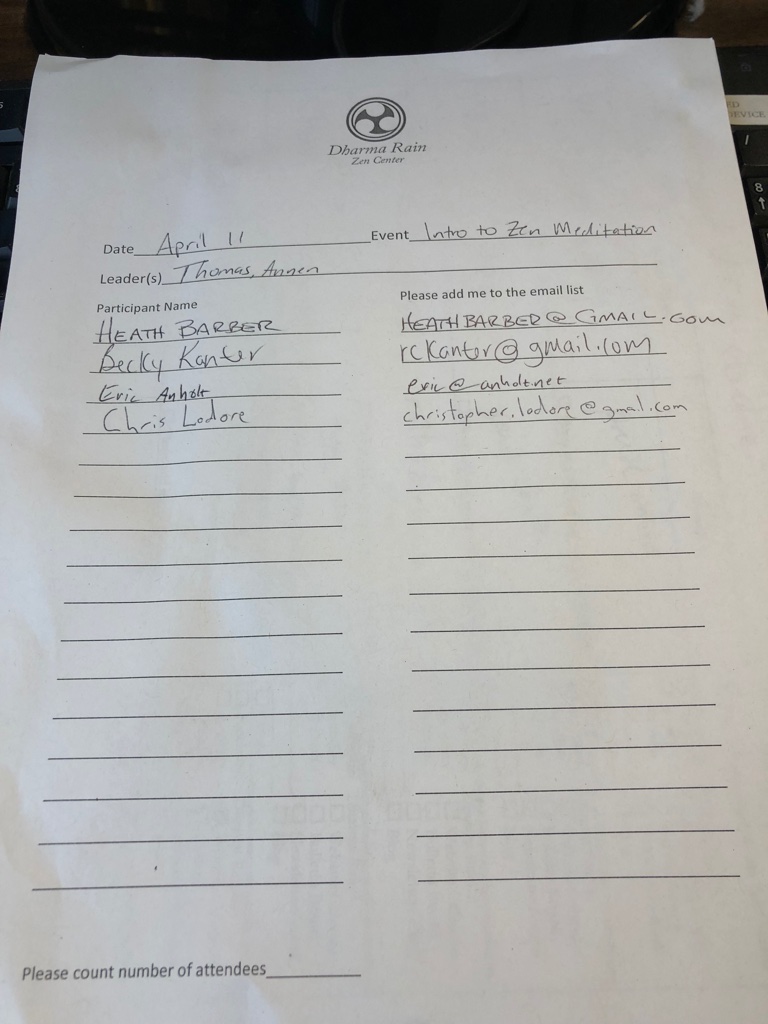 Dharma Rain
Zen Center
Date April 11 Event Intro to Zen Meditation
Leader(s) Thomas, Annen
Participant Name Please add me to the email list
HEATH BARBER HEATHBARBER@GMAIL.COM
Becky Kanter rckanter@gmail.com
Eric Anholt eric@anholt.net
Chris Lodore christopher.lodore@gmail.com
Please count number of attendees
8